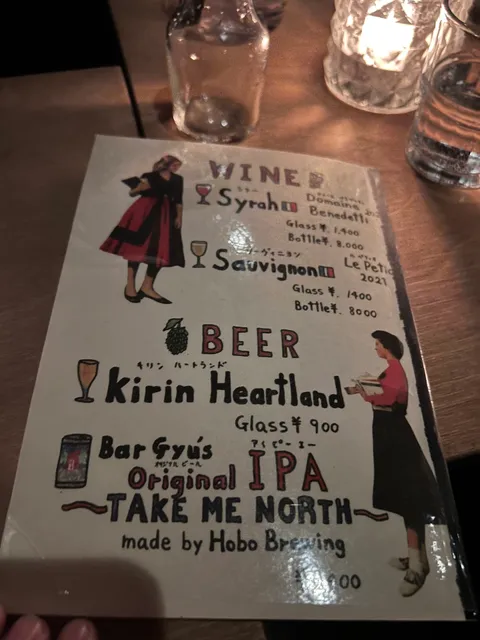 WINE
シラー
Syrah Domaine
Benedetti
Glass ¥. 1,400
Bottle ¥. 8,000
ソーヴィニヨン
Sauvignon Le Petit
2021
Glass ¥. 1400
Bottle ¥. 8000
BEER
キリン ハートランド
Kirin Heartland
Glass ¥ 900
Bar Gyu's
オリジナル ビール アイ ピー エー
Original IPA
~TAKE ME NORTH~
made by Hobo Brewing